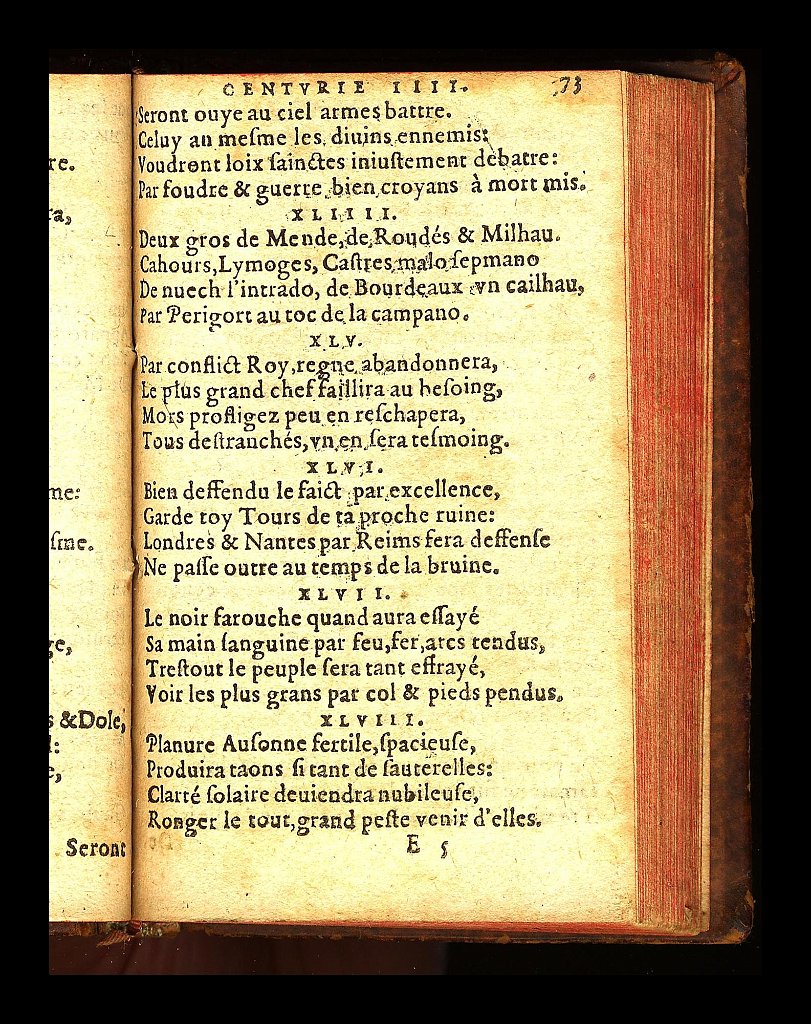 re.
ra,
me:
ſme.
ge,
s &Dole,
:
e,
Seront
CENTVRIE IIII. 73
Seront ouye au ciel armes battre.
Celuy an meſme les diuins ennemis:
Voudront loix ſainctes iniuſtement debatre:
Par foudre & guerre bien croyans à mort mis.
XLIIII.
Deux gros de Mende, de Roudés & Milhau.
Cahours, Lymoges, Caſtres malo ſepmano
De nuech l'intrado, de Bourdeaux vn cailhau,
Par Perigort au toc de la campano.
XLV.
Par conflict Roy, regne abandonnera,
Le plus grand chef faillira au beſoing,
Mors profligez peu en reſchapera,
Tous deſtranchés, vn en ſera teſmoing.
XLVI.
Bien deffendu le faict par excellence,
Garde toy Tours de ta proche ruine:
Londres & Nantes par Reims fera deffenſe
Ne paſſe outre au temps de la bruine.
XLVII.
Le noir farouche quand aura eſſayé
Sa main ſanguine par feu, fer, arcs tendus,
Treſtout le peuple ſera tant effrayé,
Voir les plus grans par col & pieds pendus.
XLVIII.
Planure Auſonne fertile, ſpacieuſe,
Produira taons ſi tant de ſauterelles:
Clarté ſolaire deuiendra nubileuſe,
Ronger le tout, grand peſte venir d'elles.
E 5